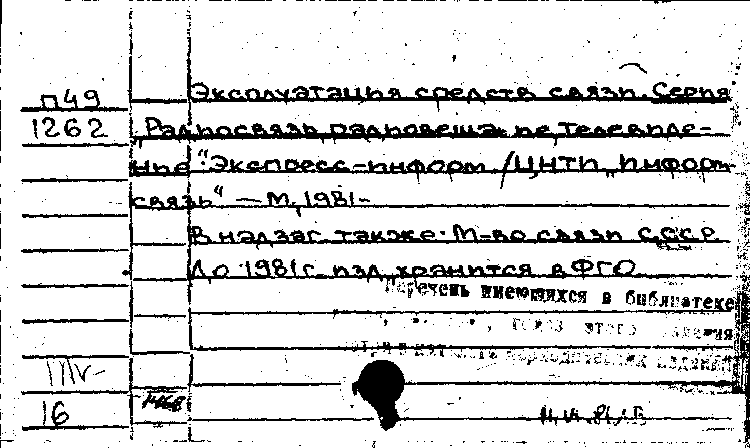 П49 Эксплуатация средств связи. Серия
1262 „Радиосвязь, радиовеща- ие, телевиде-
ние“: Экспресс-информ. / ЦНТИ „Информ-
связь“ — М, 1981-
В надзаг. также: М-во связи СССР
До 1981 г. изд. хранится в ФГО
Перечень имеющихся в библиотеке
этого
периодических изданий
16